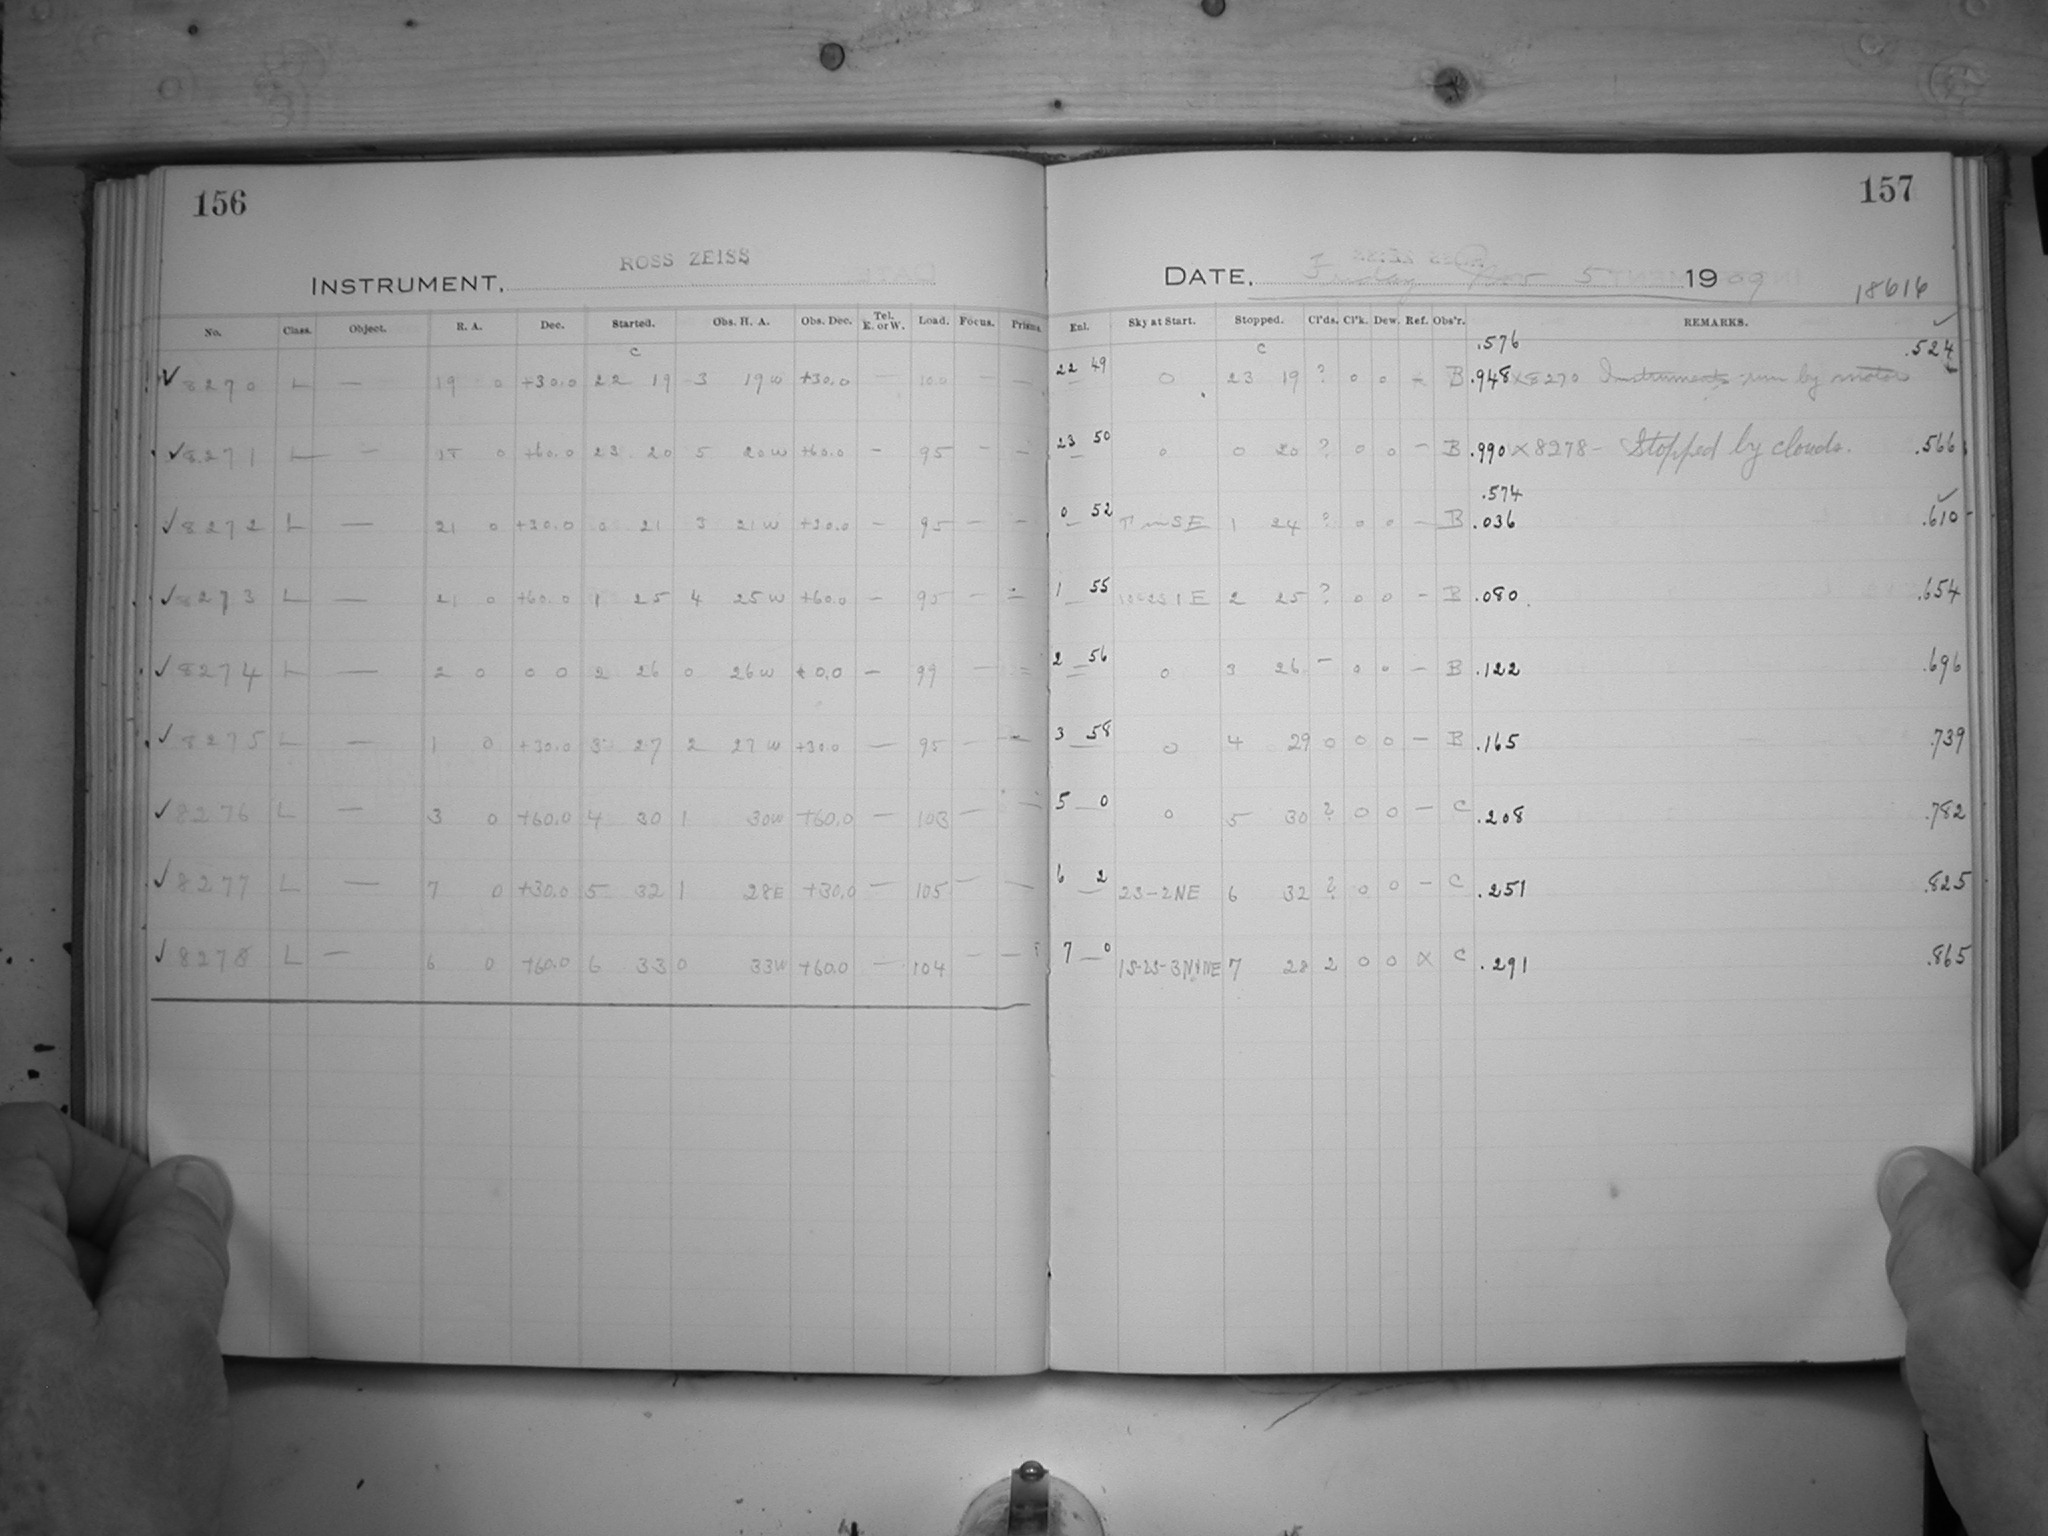 156
INSTRUMENT, ROSS ZEISS
No. Class. Object. R. A. Dec. Started. Obs. H. A. Obs. Dec. Tel. E. or W. Load. Focus. Prisms.
c
✓ 8270 L — 19 0 +30.0 22 19 3 19W +30.0 — 100 — —
✓ 8271 L — 18 0 +60.0 23 20 5 20W +60.0 — 95 — —
✓ 8272 L — 21 0 +30.0 0 21 3 21W +30.0 — 95 — —
✓ 8273 L — 21 0 +60.0 1 25 4 25W +60.0 — 95 — —
✓ 8274 L — 2 0 0 0 2 26 0 26W +0.0 — 99 — —
✓ 8275 L — 1 0 +30.0 3 27 2 27W +30.0 — 95 — —
✓ 8276 L — 3 0 +60.0 4 30 1 30W +60.0 — 103 — —
✓ 8277 L — 7 0 +30.0 5 32 1 28E +30.0 — 105 — —
✓ 8278 L — 6 0 +60.0 6 33 0 33W +60.0 — 104 — —
157
DATE, Friday Nov 5 1909
18616
Enl. Sky at Start. Stopped. Cl'ds. Cl'k. Dew. Ref. Obs'r. REMARKS.
c .576 ✓
22 49 0 23 19 ? 0 0 × B .948 ×8270 Instruments run by motor .524
23 50 0 0 20 ? 0 0 — B .990 ×8278 — Stopped by clouds. .566
.574 ✓
0 52 SE 1 24 ? 0 0 — B .036 .610
1 55 1E 2 25 ? 0 0 — B .080 .654
2 56 0 3 26 — 0 0 — B .122 .696
3 58 0 4 29 0 0 0 — B .165 .739
5 0 0 5 30 ? 0 0 — C .208 .782
6 2 2S-2NE 6 32 ? 0 0 — C .251 .825
7 0 1S-2S-3N&NE 7 28 2 0 0 × C .291 .865